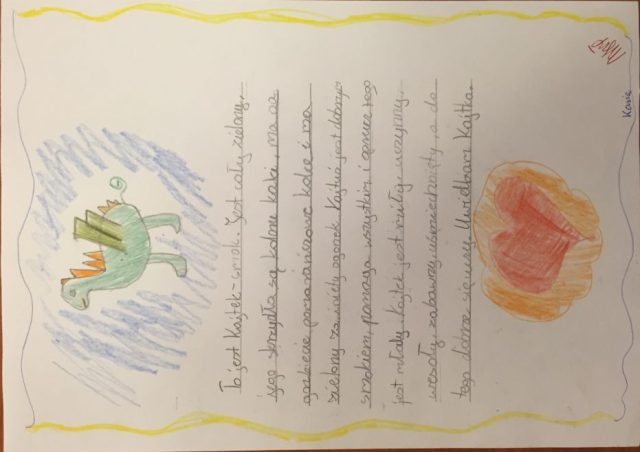 To jest Kajtek-smok. Jest cały zielony,
jego skrzydła są koloru kaki, ma na
grzbiecie pomarańczowe kolce i ma
zielony zawinięty ogonek. Kajtuś jest dobrym
smokiem, pomaga wszystkim i oprócz tego
jest miły. Kajtek jest czuły, uczynny,
wesoły, zabawny, uśmiechnięty, a do
tego dobrze się uczy. Uwielbiam Kajtka.
Kasia